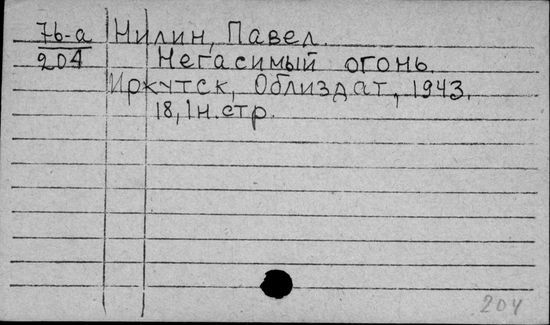 76-а Нилин, Павел.
204 Негасимый огонь.
Иркутск, Облиздат, 1943.
18, 1 н. стр.
204